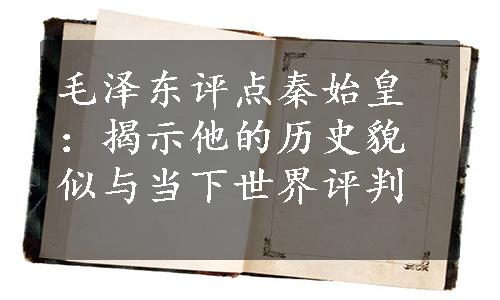 毛泽东评点秦始皇
：揭示他的历史貌
似与当下世界评判